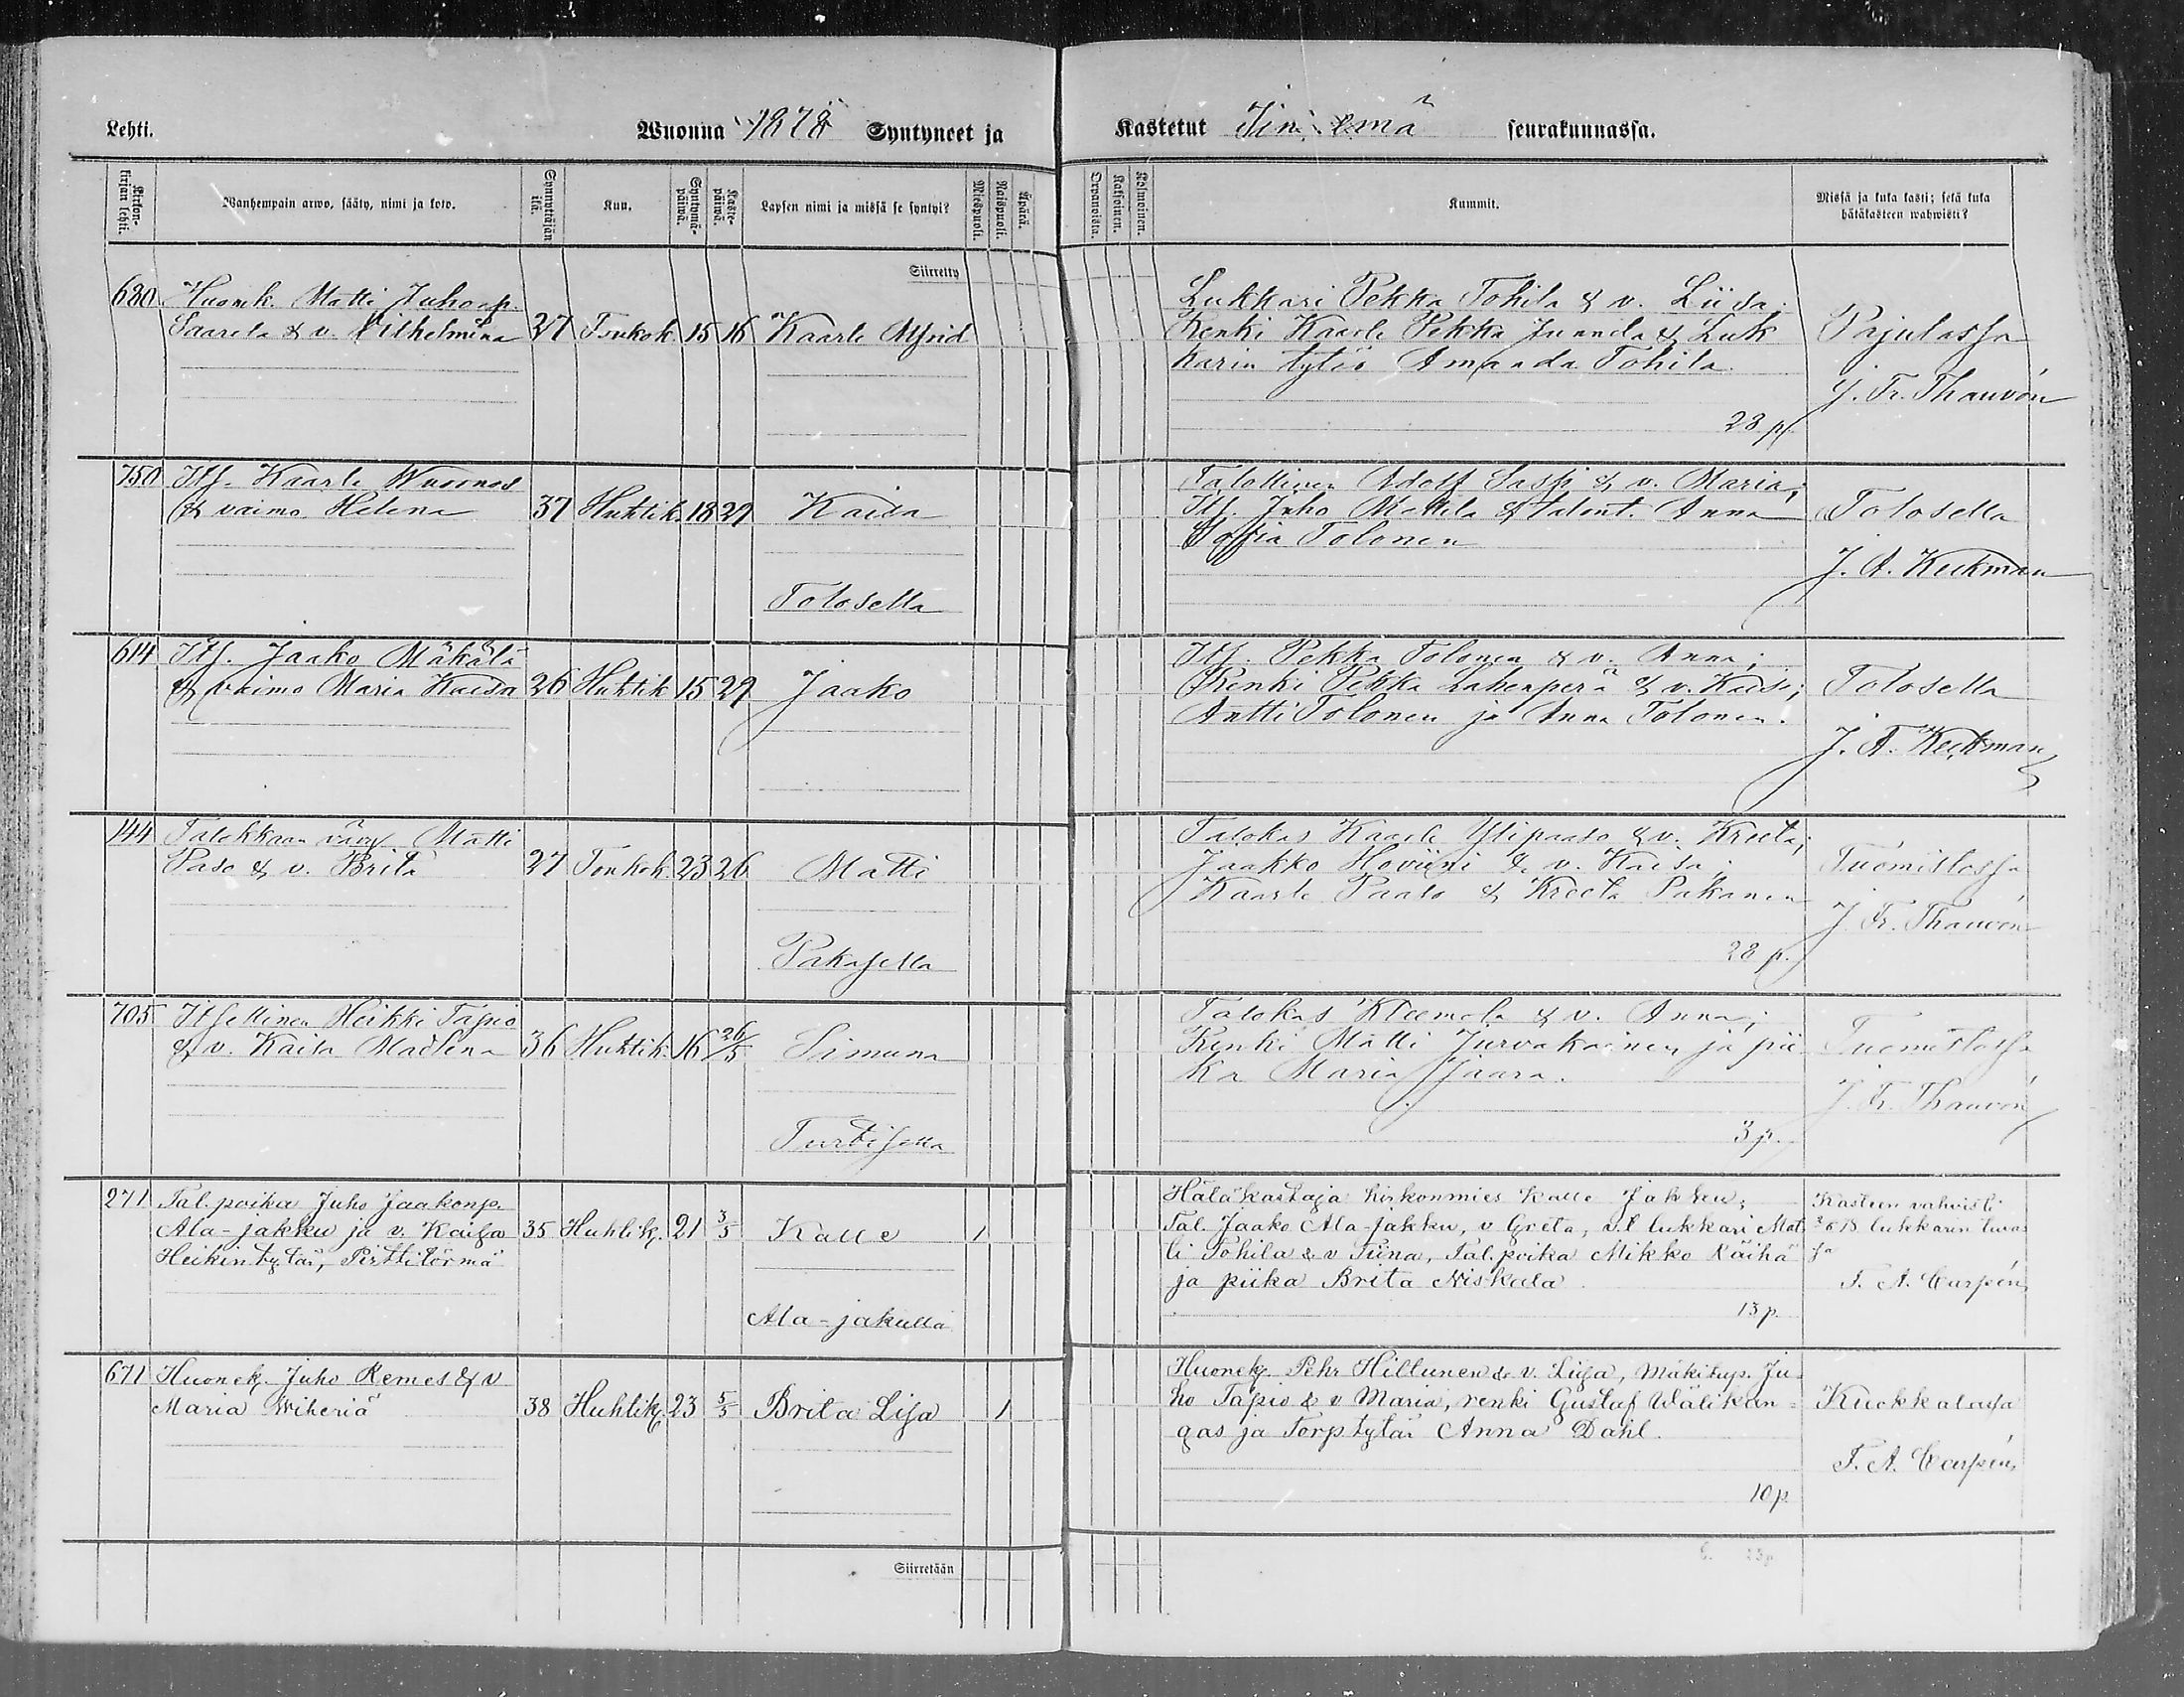 Lehti.
Wuonna 1878 Syntyneet ja
Kirkonkirjan lehti.
Wanhempain arwo, sääty, nimi ja koto.
Synnyttäjän ikä.
Kuu.
Syntymäpäivä.
Kastepäivä.
Lapsen nimi ja missä se syntyi?
Miespuoli.
Naispuoli.
Äpärä.
Siirretty
680 Huonek. Matti Juhonp.
Saarela & v. Vilhelmina 27 Toukok. 15 16 Kaarle Alfrid
750 Itf. Kaarle Wuornos
& vaimo Helena 37 Huhtik. 18 29 Kaisa
Tolosella
614 Itf. Jaako Mäkälä
& vaimo Maria Kaisa 26 Huhtik 15 29 Jaako
144 Talokkaan vävy Matti
Paso & v. Brita 27 Toukok. 23 26 Matti
Pakasella
705 Itsellinen Heikki Tapio
& v. Kaisa Madlena 36 Huhtik. 16 26/5 Simuna
Turtisella
271 Tal. poika Juho Jaakonp.
Ala-jakku ja v. Kaisa 35 Huhtik. 21 3/5 Kalle 1
Heikintytär, Pirttitörmä
Ala-jakulla
671 Huonek. Juho Remes & v
Maria Wiheriä 38 Huhtik. 23 5/5 Brita Lisa 1
Siirretään
Kastetut seurakunnassa.
Orpanoista.
Kaksoinen.
Kolmoinen.
Kummit.
Missä ja kuka kasti; sekä kuka hätäkasteen wahwisti?
Lukkari Pekka Tohila & v. Liisa.
Renki Kaarle Pekka Junnela & Luk
karin tytär Amanda Tohila.
28 p.
Pajulassa
J. Fr. Thauvón
Talollinen Adolf Saski & v. Maria;
Itf. Juho Mattila & talont. Anna
Sofia Tolonen
Tolosella
J. A. Keckman
Itf. Pekka Tolonen & v. Anna;
Renki Pekka Lahenperä & v. Kaisa;
Antti Tolonen ja Anna Tolonen.
Tolosella
J. A. Keckman
Talokas Kaarle Ylipaaso & v. Kreeta;
Jaakko Hoviini & v. Kaisa;
Kaarle Paaso & Kreeta Pakanen
28 p.
Tuomilassa
J. Fr. Thauvón
Talokas Kleemola & v. Anna;
Renki Matti Jurvakainen ja pii
ka Maria Jaara.
3 p.
Tuomilassa
J. Fr. Thauvón
Hätäkastaja kirkonmies Kalle Jakku;
Tal. Jaako Ala-jakku, v Greta, v.t lukkari Mat
ti Tohila & v Tiina, Tal. poika Mikko Räihä
ja piika Brita Niskala
13 p.
Kasteen vahvisti
lukkarin tuvas
sa
F. A. Carpén
Huonek. Pehr Hiltunen & v. Lisa, Mäkitup. Ju-
ho Tapio & v Maria, renki Gustaf Wälikan-
gas ja Torp.tytär Anna Dahl.
10 p.
Kuckkalassa
F. A. Carpén